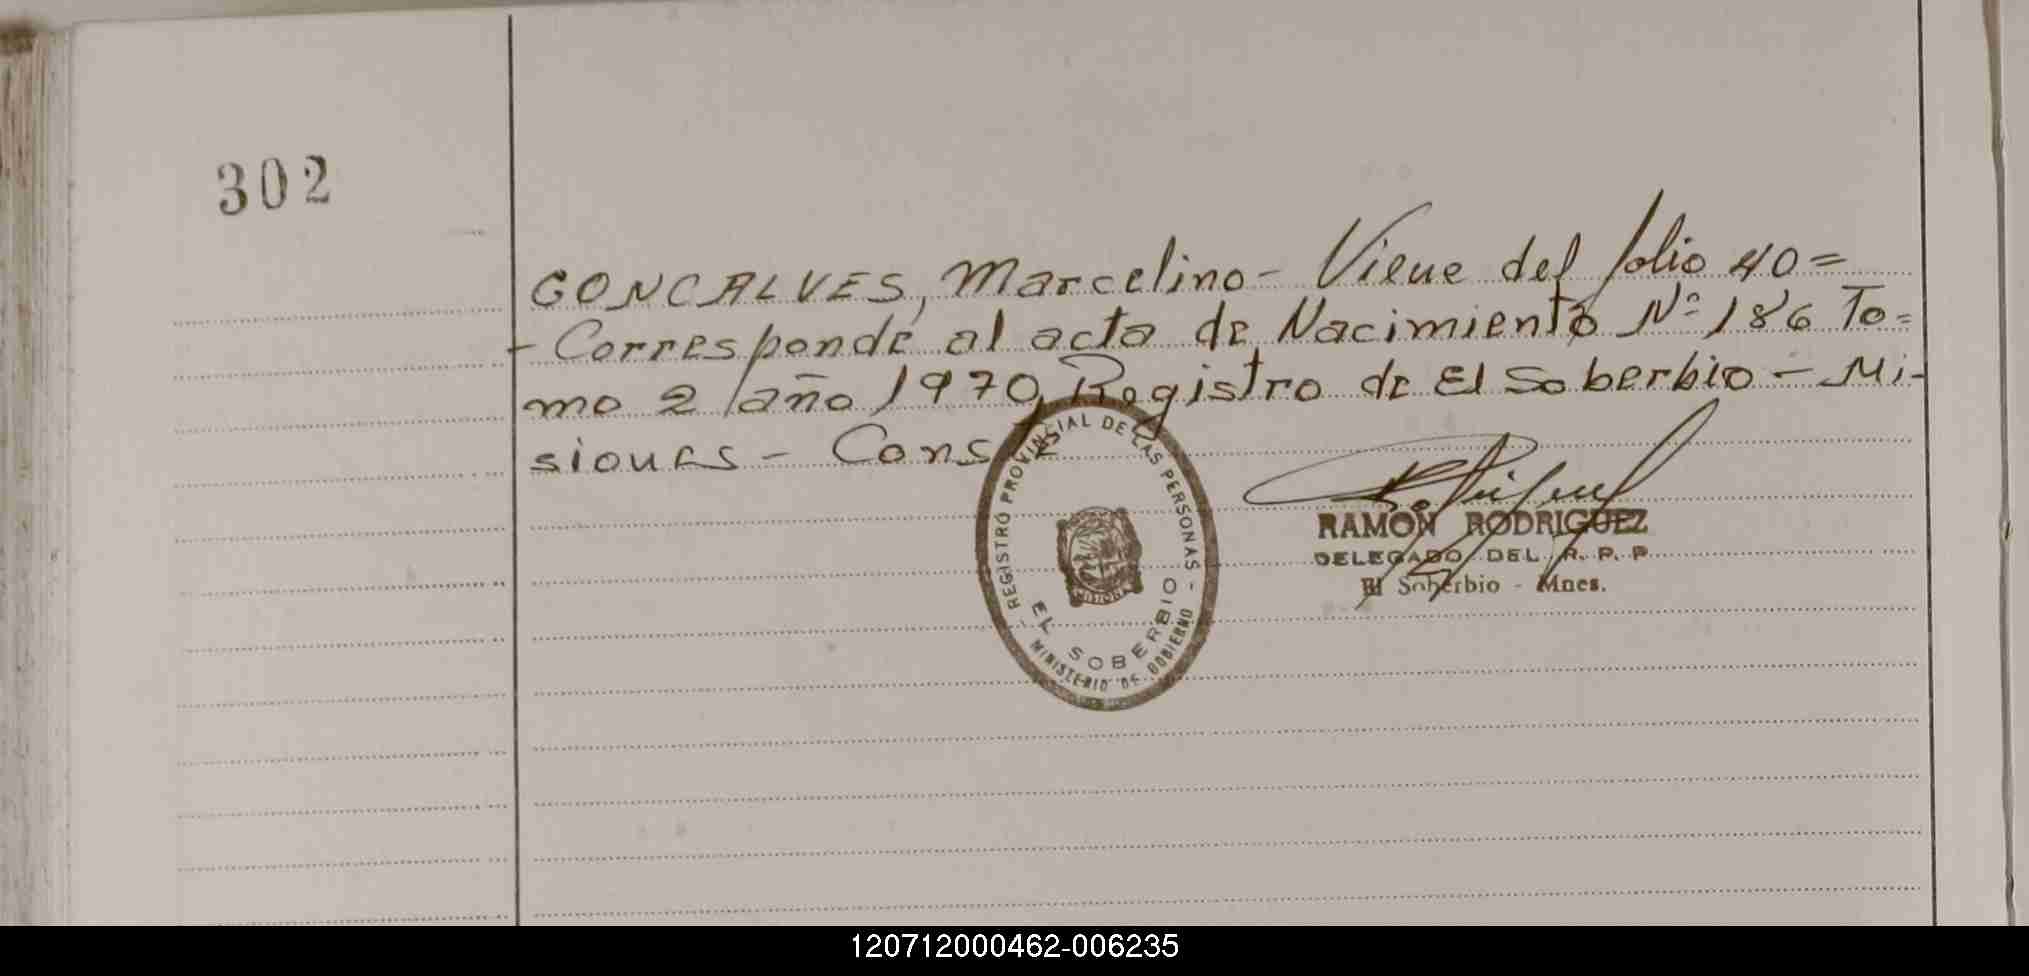 302
GONCALVES, Marcelino - Viene del folio 40=
- Corresponde al acta de Nacimiento Nº 186 To=
mo 2 año 1970, Registro de El Soberbio - Mi-
siones - Conste
REGISTRO PROVINCIAL DE LAS PERSONAS -
EL SOBERBIO
MINISTERIO DE GOBIERNO
MISIONES
RAMON RODRIGUEZ
DELEGADO DEL R. P. P
El Soberbio - Mnes.
120712000462-006235